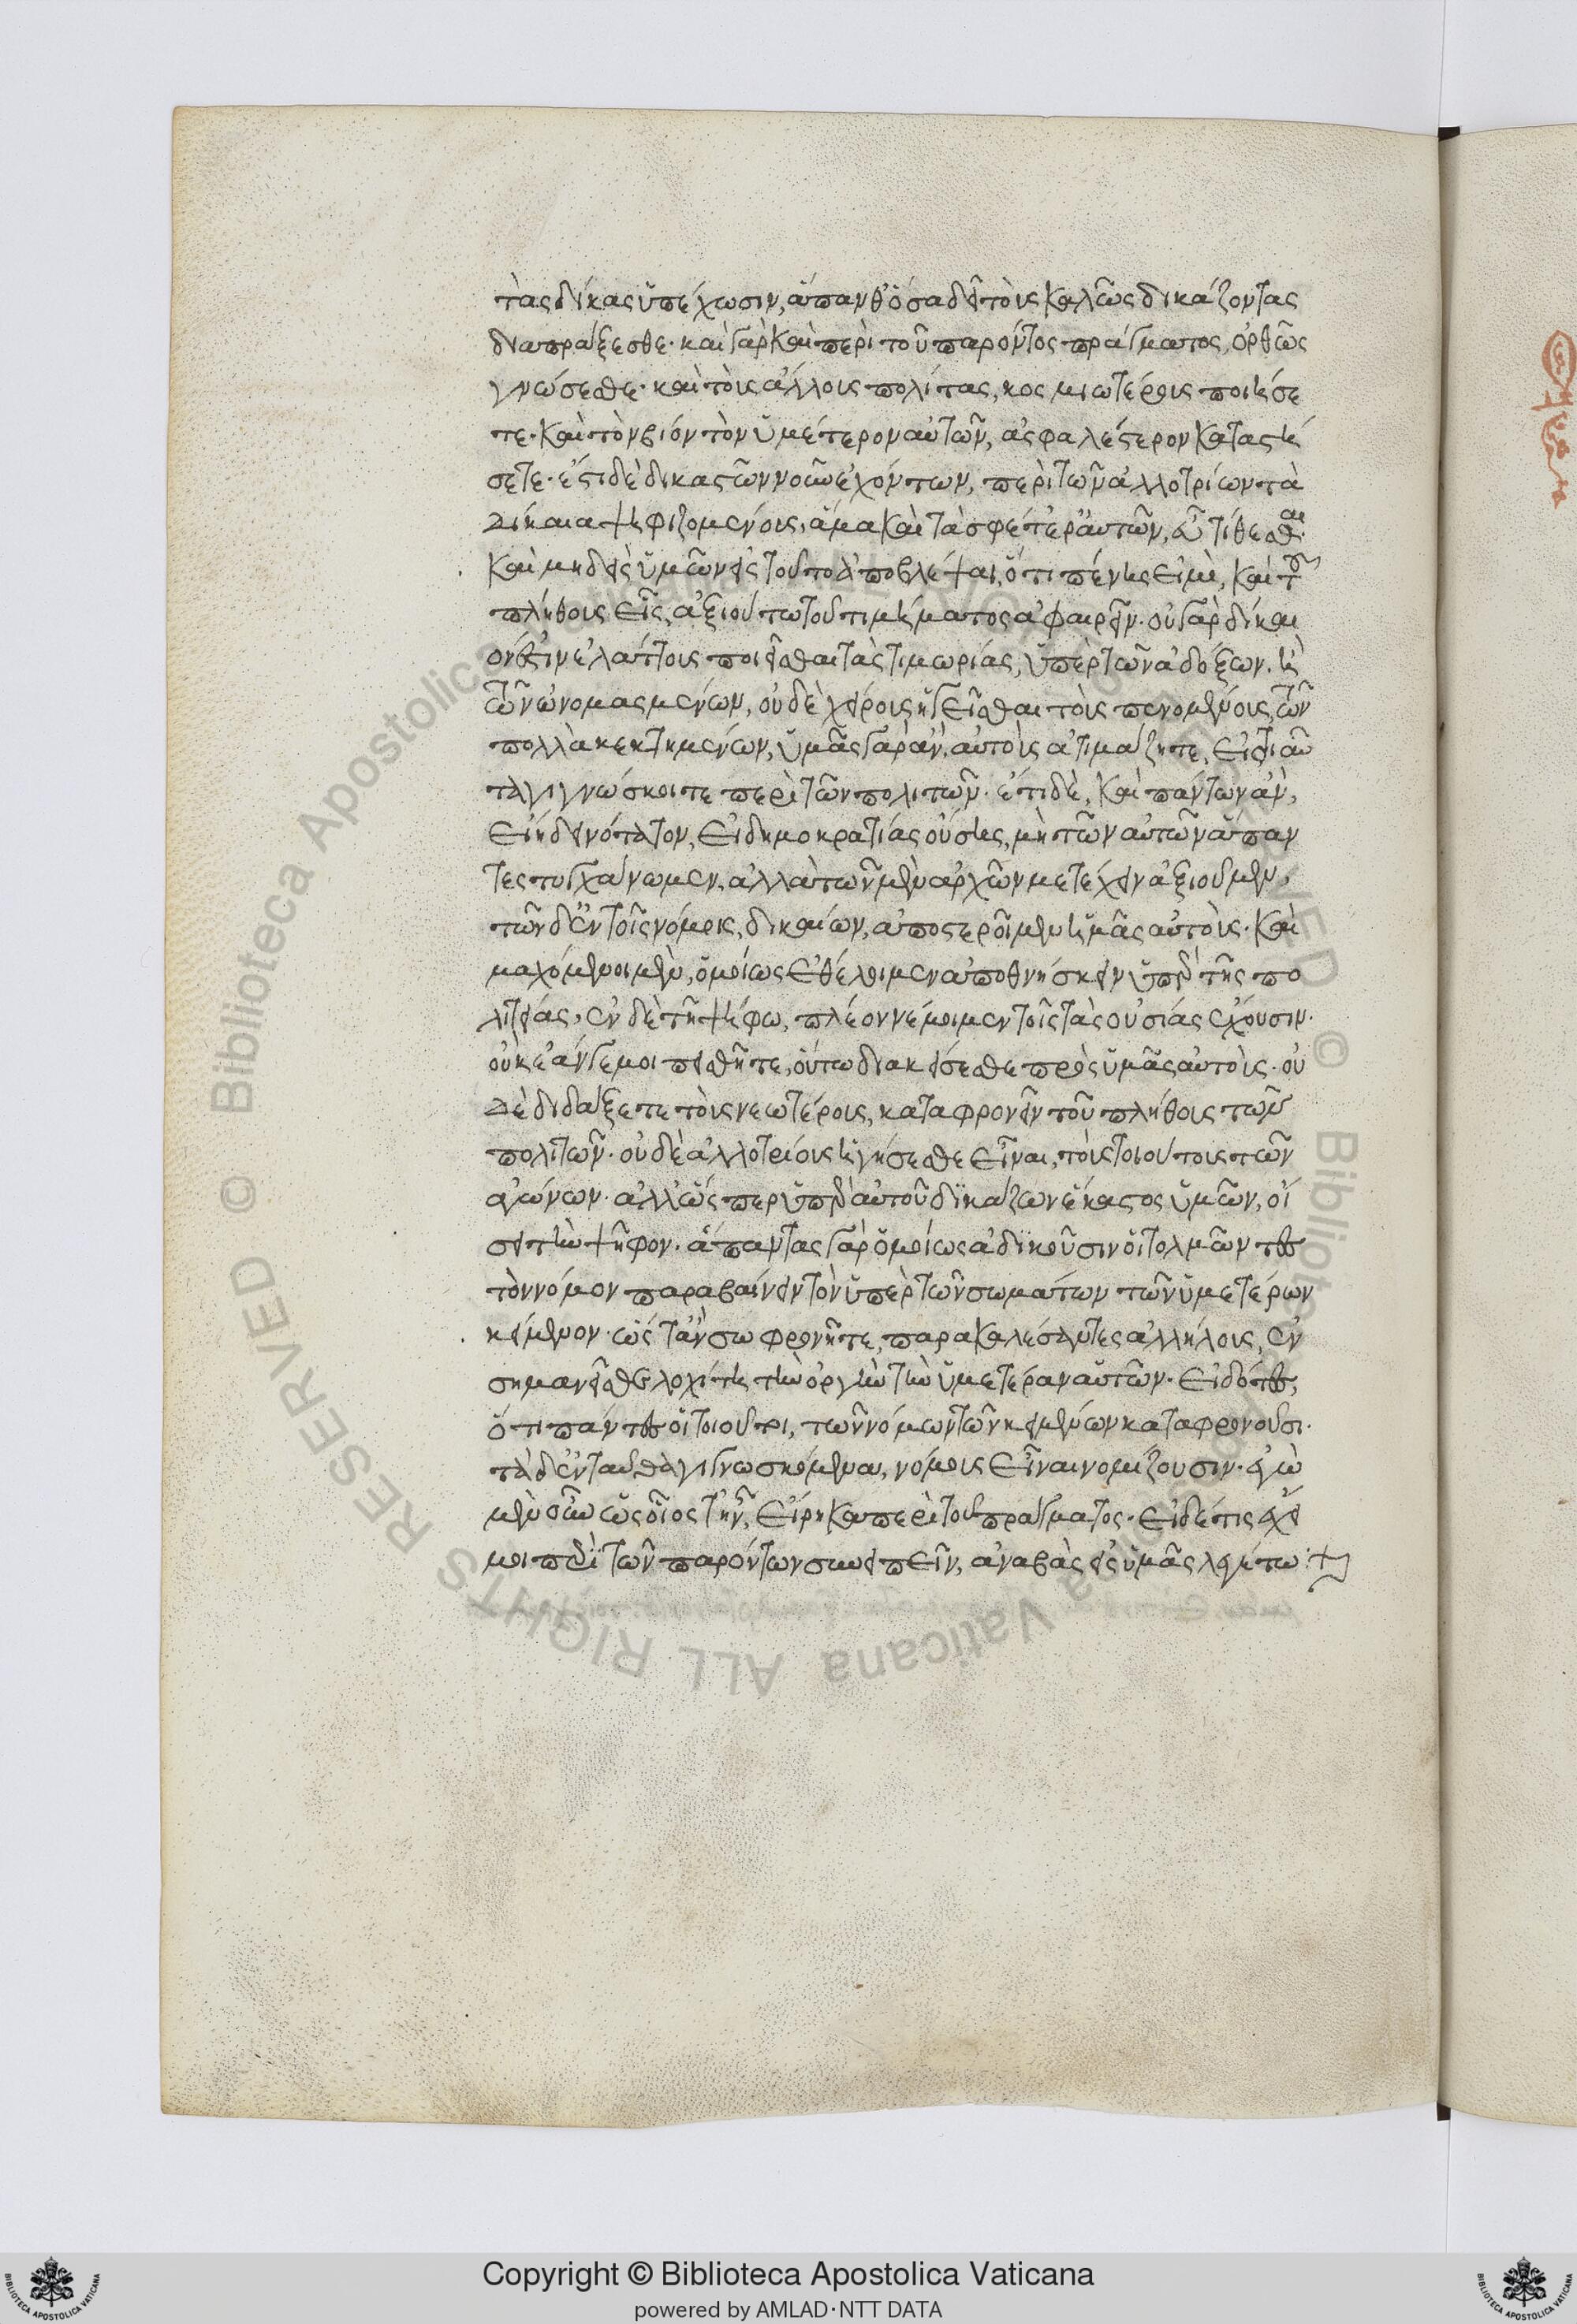 τὰς δίκας ὑπέχωσιν, ἅπανθ' ὅσα δεῖ τοὺς καλῶς δικάζοντας
διαπράξεσθε· καὶ γὰρ καὶ περὶ τοῦ παρόντος πράγματος, ὀρθῶς
γνώσεσθε· καὶ τοὺς ἄλλους πολίτας, κοσμιωτέρους ποιήσε
τε· καὶ τὸν βίον τὸν ὑμέτερον αὐτῶν, ἀσφαλέστερον καταστή
σετε· ἔστι δὲ δικαστῶν νοῦν ἐχόντων, περὶ τῶν ἀλλοτρίων τὰ
δίκαια ψηφιζομένους, ἅμα καὶ τὰ σφέτερ' αὐτῶν, εὖ τίθεσθαι·
καὶ μηδεὶς ὑμῶν εἰς τοῦτο ἀποβλέψαι, ὅτι πένης εἰμὶ, καὶ τοῦ
πλήθους εἷς, ἀξιούτω τοῦ τιμήματος ἀφαιρεῖν· οὐ γὰρ δίκαι
όν ἐστιν ἐλάττους ποιεῖσθαι τὰς τιμωρίας, ὑπὲρ τῶν ἀδόξων, ἢ
τῶν ὠνομασμένων, οὐδὲ χείρους ἡγεῖσθαι τοὺς πενομένους, τῶν
πολλὰ κεκτημένων, ὑμᾶς γὰρ ἂν, αὐτοὺς ἀτιμάζητε, εἰ τοιαῦ
τα γιγνώσκοιτε περὶ τῶν πολιτῶν· ἔτι δὲ, καὶ πάντων ἂν,
εἴη δεινότατον, εἰ δημοκρατίας οὔσης, μὴ τῶν αὐτῶν ἅπαν
τες τυγχάνωμεν, ἀλλὰ τῶν μὲν ἀρχῶν μετέχειν ἀξιοῦμεν,
τῶν δ' ἐν τοῖς νόμοις, δικαίων, ἀποστεροῖμεν ἡμᾶς αὐτοὺς· καὶ
μαχόμενοι μὲν, ὁμοίως ἐθέλοιμεν ἀποθνήσκειν ὑπὲρ τῆς πο
λιτείας, ἐν δὲ τῇ ψήφῳ, πλέον νέμοιμεν τοῖς τὰς οὐσίας ἔχουσιν·
οὐκ ἐάν γέ μοι πεισθῆτε, οὕτω διακείσεσθε πρὸς ὑμᾶς αὐτοὺς· οὐ
δὲ διδάξετε τοὺς νεωτέρους, καταφρονεῖν τοῦ πλήθους τῶν
πολιτῶν· οὐδὲ ἀλλοτρίους ἡγήσεσθε εἶναι, τοὺς τοιούτους τῶν
ἀγώνων· ἀλλ' ὥσπερ ὑπὲρ αὐτοῦ δικάζων ἕκαστος ὑμῶν, οἴ
σει τὴν ψῆφον· ἅπαντας γὰρ ὁμοίως ἀδικοῦσιν οἱ τολμῶντες
τὸν νόμον παραβαίνειν τὸν ὑπὲρ τῶν σωμάτων τῶν ὑμετέρων
κείμενον· ὥστ' ἂν σωφρονῆτε, παρακαλέσαντες ἀλλήλους, ἐν
σημανεῖσθε λοχίτῃ τὴν ὀργὴν τὴν ὑμετέραν αὐτῶν· εἰδότες,
ὅτι πάντες οἱ τοιοῦτοι, τῶν νόμων τῶν κειμένων καταφρονοῦσι·
τὰ δ' ἐνταῦθα γιγνωσκόμενα, νόμους εἶναι νομίζουσιν· ἐγὼ
μὲν οὖν ὡς οἷός τ' ἦν, εἴρηκα περὶ τοῦ πράγματος· εἰ δέ τις ἔχει
μοι περὶ τῶν παρόντων συνειπεῖν, ἀναβὰς εἰς ὑμᾶς λεγέτω
Copyright © Biblioteca Apostolica Vaticana
powered by AMLAD·NTT DATA